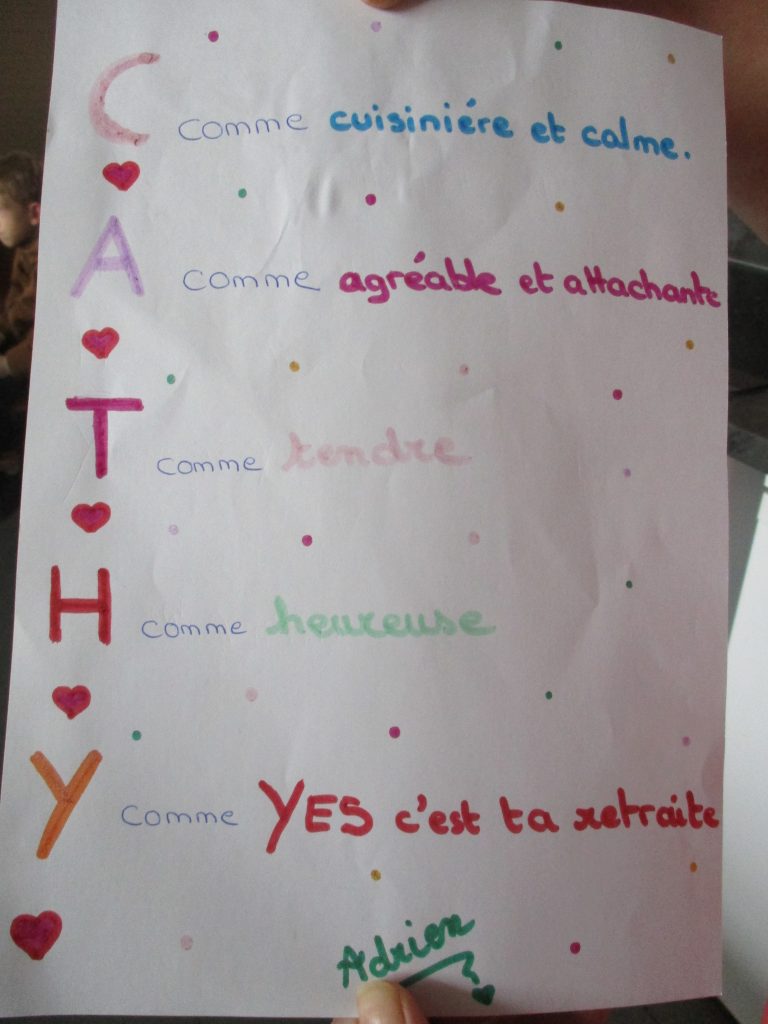 C comme cuisiniére et calme.
A comme agréable et attachante
T comme tendre
H comme heureuse
Y comme YES c'est ta retraite
Adrien